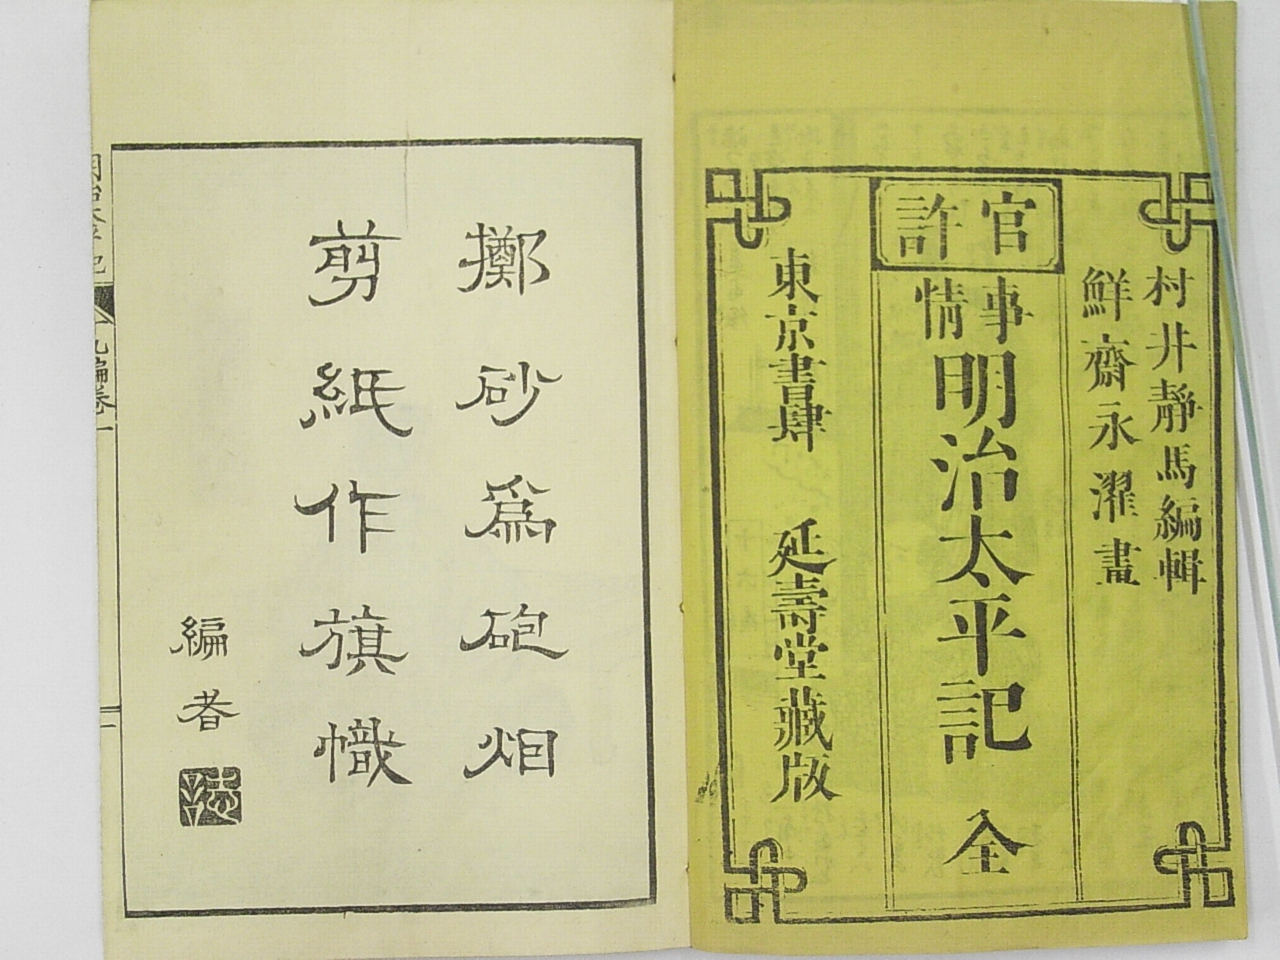 官許
村井靜馬編輯
鮮齋永濯畫
事情
明治太平記 全
東京書肆 延壽堂藏版
擲砂爲砲烟
剪紙作旗幟
編者
誌
明治太平記 九編卷一